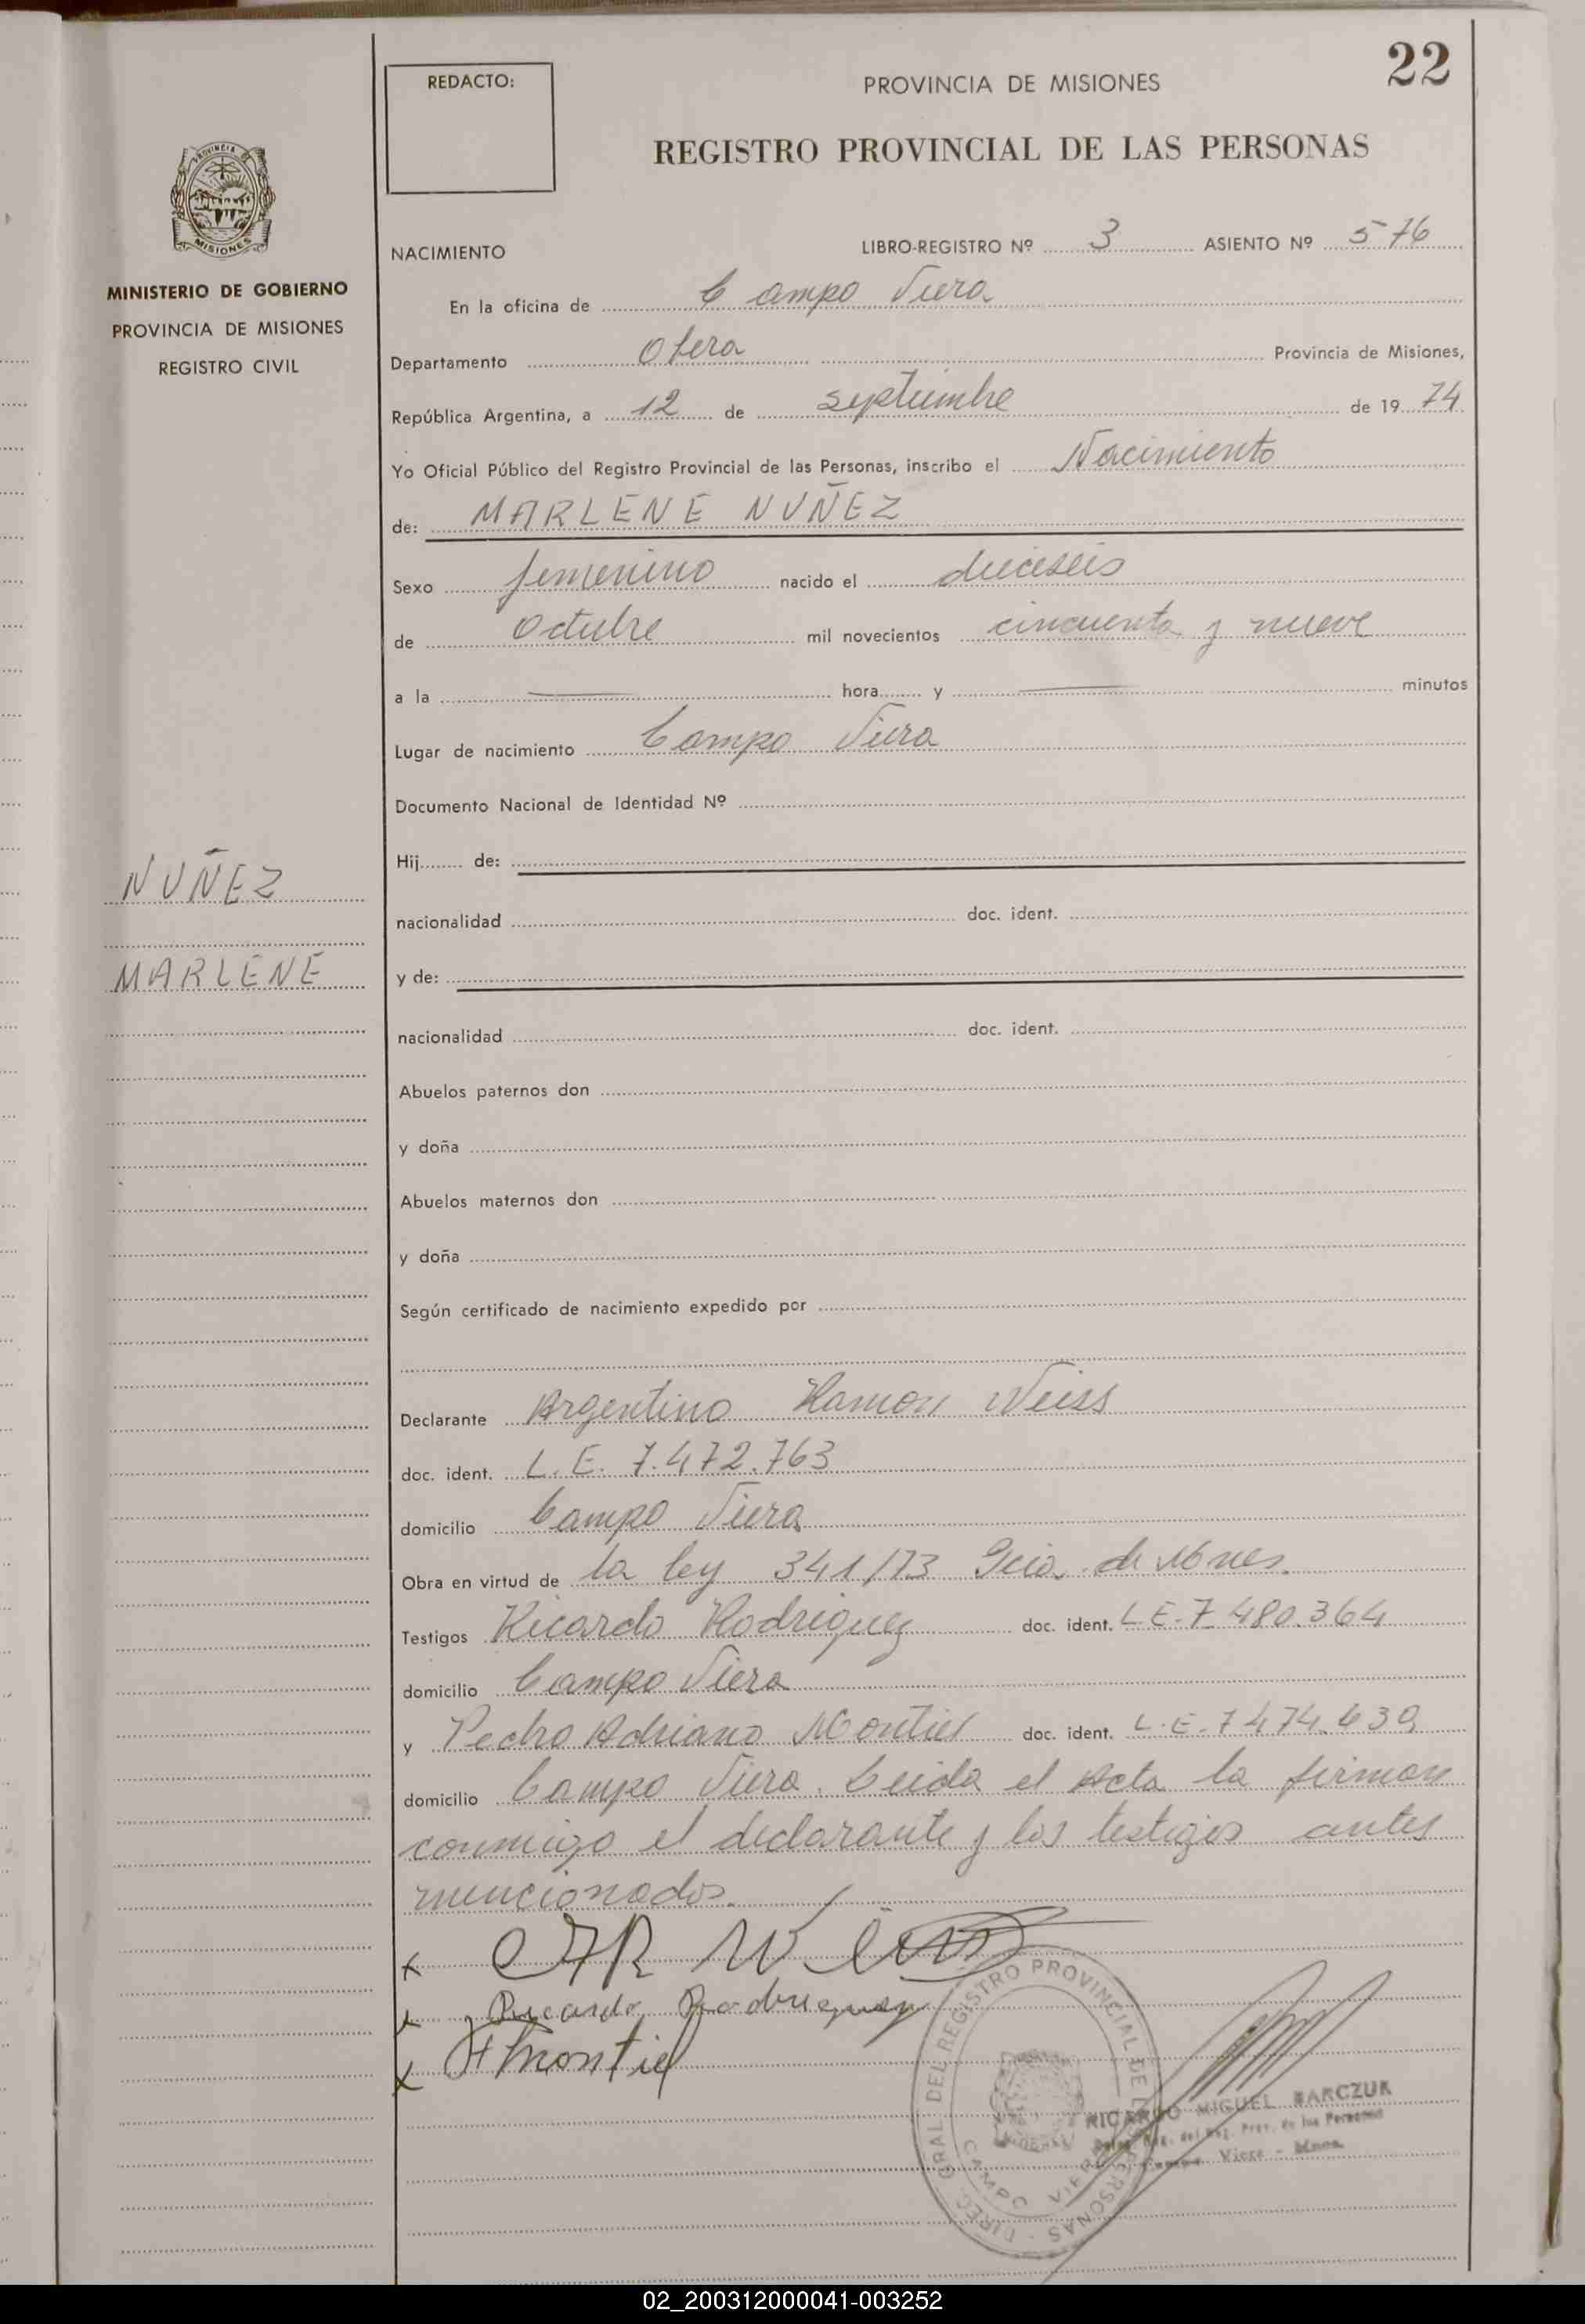 22
REDACTO:
PROVINCIA DE MISIONES
REGISTRO PROVINCIAL DE LAS PERSONAS
PROVINCIA DE
MISIONES
MINISTERIO DE GOBIERNO
PROVINCIA DE MISIONES
REGISTRO CIVIL
NACIMIENTO LIBRO-REGISTRO Nº 3 ASIENTO Nº 576
En la oficina de Campo Viera
Departamento Obera Provincia de Misiones,
República Argentina, a 12 de septiembre de 19 74
Yo Oficial Público del Registro Provincial de las Personas, inscribo el Nacimiento
de: MARLENE NUÑEZ
Sexo femenino nacido el dieciseis
de Octubre mil novecientos cincuenta y nueve
a la — hora y — minutos
Lugar de nacimiento Campo Viera
Documento Nacional de Identidad Nº
Hij de:
NUÑEZ
nacionalidad doc. ident.
MARLENE
y de:
nacionalidad doc. ident.
Abuelos paternos don
y doña
Abuelos maternos don
y doña
Según certificado de nacimiento expedido por
Declarante Argentino Ramon Weiss
doc. ident. L.E. 7.472.763
domicilio Campo Viera
Obra en virtud de la ley 341/73 Pcia. de Mnes.
Testigos Ricardo Rodriguez doc. ident. L E. 7.480.364
domicilio Campo Viera
y Pedro Adriano Montiel doc. ident. L.E. 7474.630
domicilio Campo Viera. Leida el Acta la firman
conmigo el declarante y los testigos antes
mencionados.
x AR Weiss
x Ricardo Rodriguez
x Montiel
DIREC. GRAL DEL REGISTRO PROVINCIAL DE LAS PERSONAS
CAMPO VIERA
RICARDO MIGUEL BARCZUK
Reg. Prov. de las Personas
Campo Viera - Mnes.
02_200312000041-003252